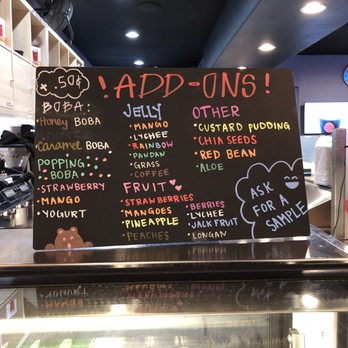 +.50¢
!ADD-ONS!
BOBA:
•Honey BOBA
•Caramel BOBA
POPPING BOBA:
•STRAWBERRY
•MANGO
•YOGURT
JELLY
•MANGO
•LYCHEE
•RAINBOW
•PANDAN
•GRASS
•COFFEE
FRUIT
•STRAWBERRIES
•MANGOES
•PINEAPPLE
•PEACHES
•BERRIES
•LYCHEE
•JACK FRUIT
•LONGAN
OTHER
•CUSTARD PUDDING
•CHIA SEEDS
•RED BEAN
•ALOE
ASK
FOR A
SAMPLE